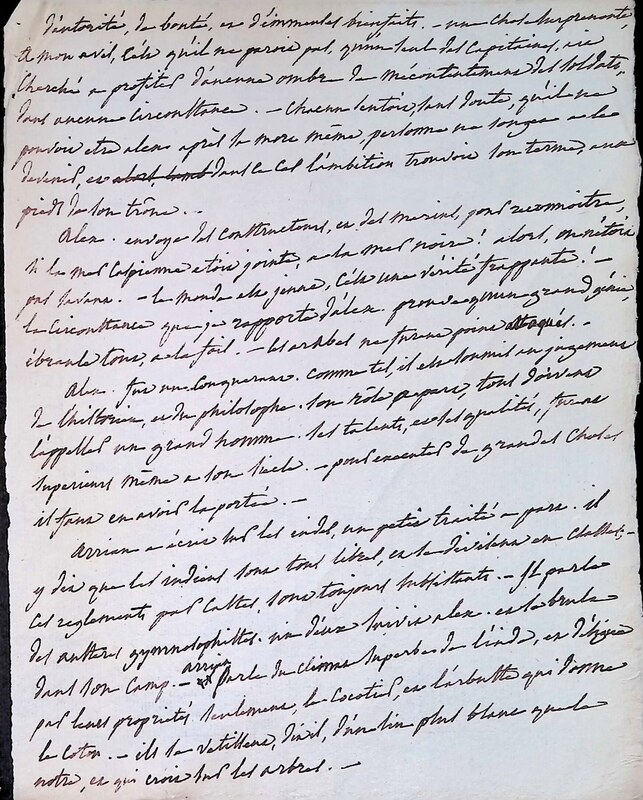 d'autorité, de bonté, et d'immenses bienfaits. - une chose surprenante,
a mon avis, c'est qu'il ne parois pas, qu'un seul des Capitaines, aie
cherché a profiter d'aucune ombre de mécontentement des soldats,
dans aucune circonstance. - chacun sentois, sans doute, qu'il ne
pouvois etre alex. après sa mort même, personne ne songea a le
devenir, et dans ce cas l'ambition trouvois son terme, aux
pieds de son trône. -
Alex. envoya des constructeurs, et des marins, pour reconnoitre,
si la mer Caspienne étois jointe, a la mer noire! alors, on n'étois
pas savant. - le monde est jeune, c'est une vérité frappante! -
la circonstance que je rapporte d'alex. prouve qu'un grand génie,
ébranle tout, a la fois. - les arabes ne furent point attaqués. -
Alex. fut un Conquerant. comme tel, il est soumis au jugement
de l'historien, et du philosophe. son rôle a part, tous doivent
l'appeller un grand homme. ses talents, et ses qualités, furent
superieurs même a son siecle. - pour executer de grandes choses
il faut en avoir la portée. -
Arrien a écrit sur les indes, un petit traité a part. il
y dit que les indiens sont tous libres, et se divisent en classes; -
ces reglements par castes, sont toujours subsistants. - Il parle
des austeres gymnosophistes. un d'eux suivit alex. et se brula
dans son Camp. - arrien parle du climat superbe de l'inde, et désigne
par leurs propriétés seulement, le cocotier, et l'arbuste qui donne
le coton. - ils se vetissent, dit-il, d'un lin plus blanc que le
notre, et qui crois sur les arbres. -